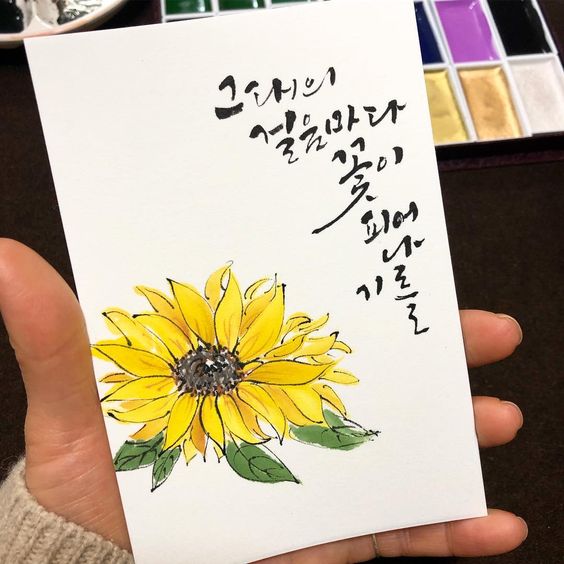 그대의
걸음마다
꽃이
피어
나
기를